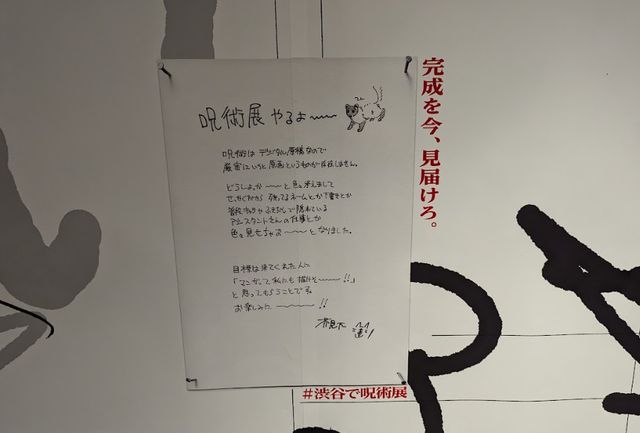 呪術展 やるよ〜〜
呪術は デジタル原稿なので
厳密にいうと 原画というものが存在しません。
どうしょっか〜〜 と 色々考えまして
せっかくだから 残ってるネームとか下書きとか
普段 枠外や ふきだしで隠れている
アシスタントさんの仕事とか
色々見せちゃお〜〜 となりました。
目標は来てくれた人に
「マンガって私にも描けそ〜〜!!」
と 思ってもらうことです。
お楽しみに〜〜!!
完成を今、見届けろ。
#渋谷で呪術展